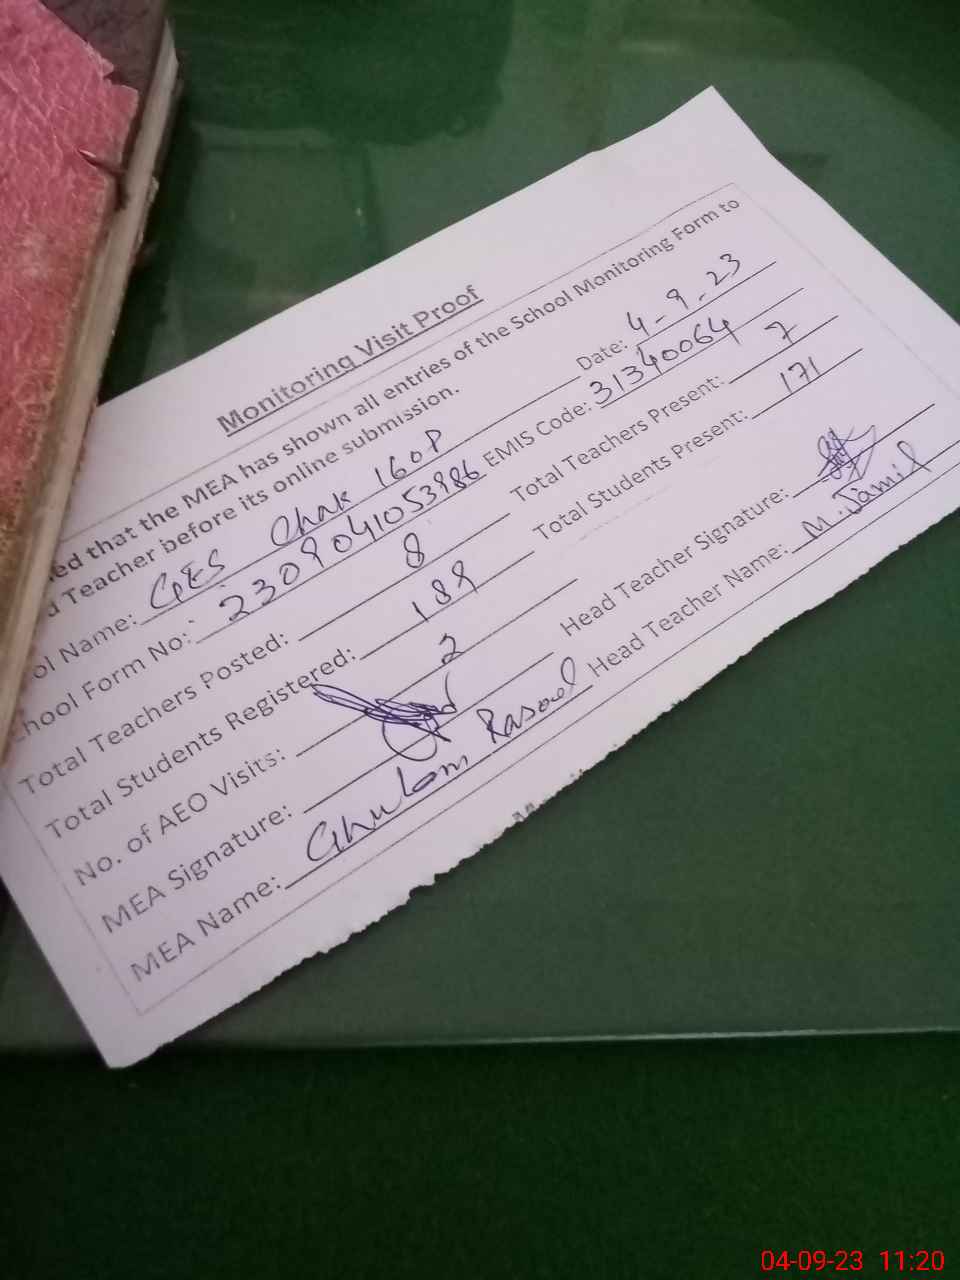 Monitoring Visit Proof
ed that the MEA has shown all entries of the School Monitoring Form to
d Teacher before its online submission.
ol Name: GES Chak 160P Date: 4-9-23
chool Form No: 2309041053986 EMIS Code: 31340064
Total Teachers Posted: 8 Total Teachers Present: 7
Total Students Registered: 189 Total Students Present: 171
No. of AEO Visits: 2
MEA Signature: Head Teacher Signature:
MEA Name: Ghulam Rasool Head Teacher Name: M. Jamil
04-09-23 11:20